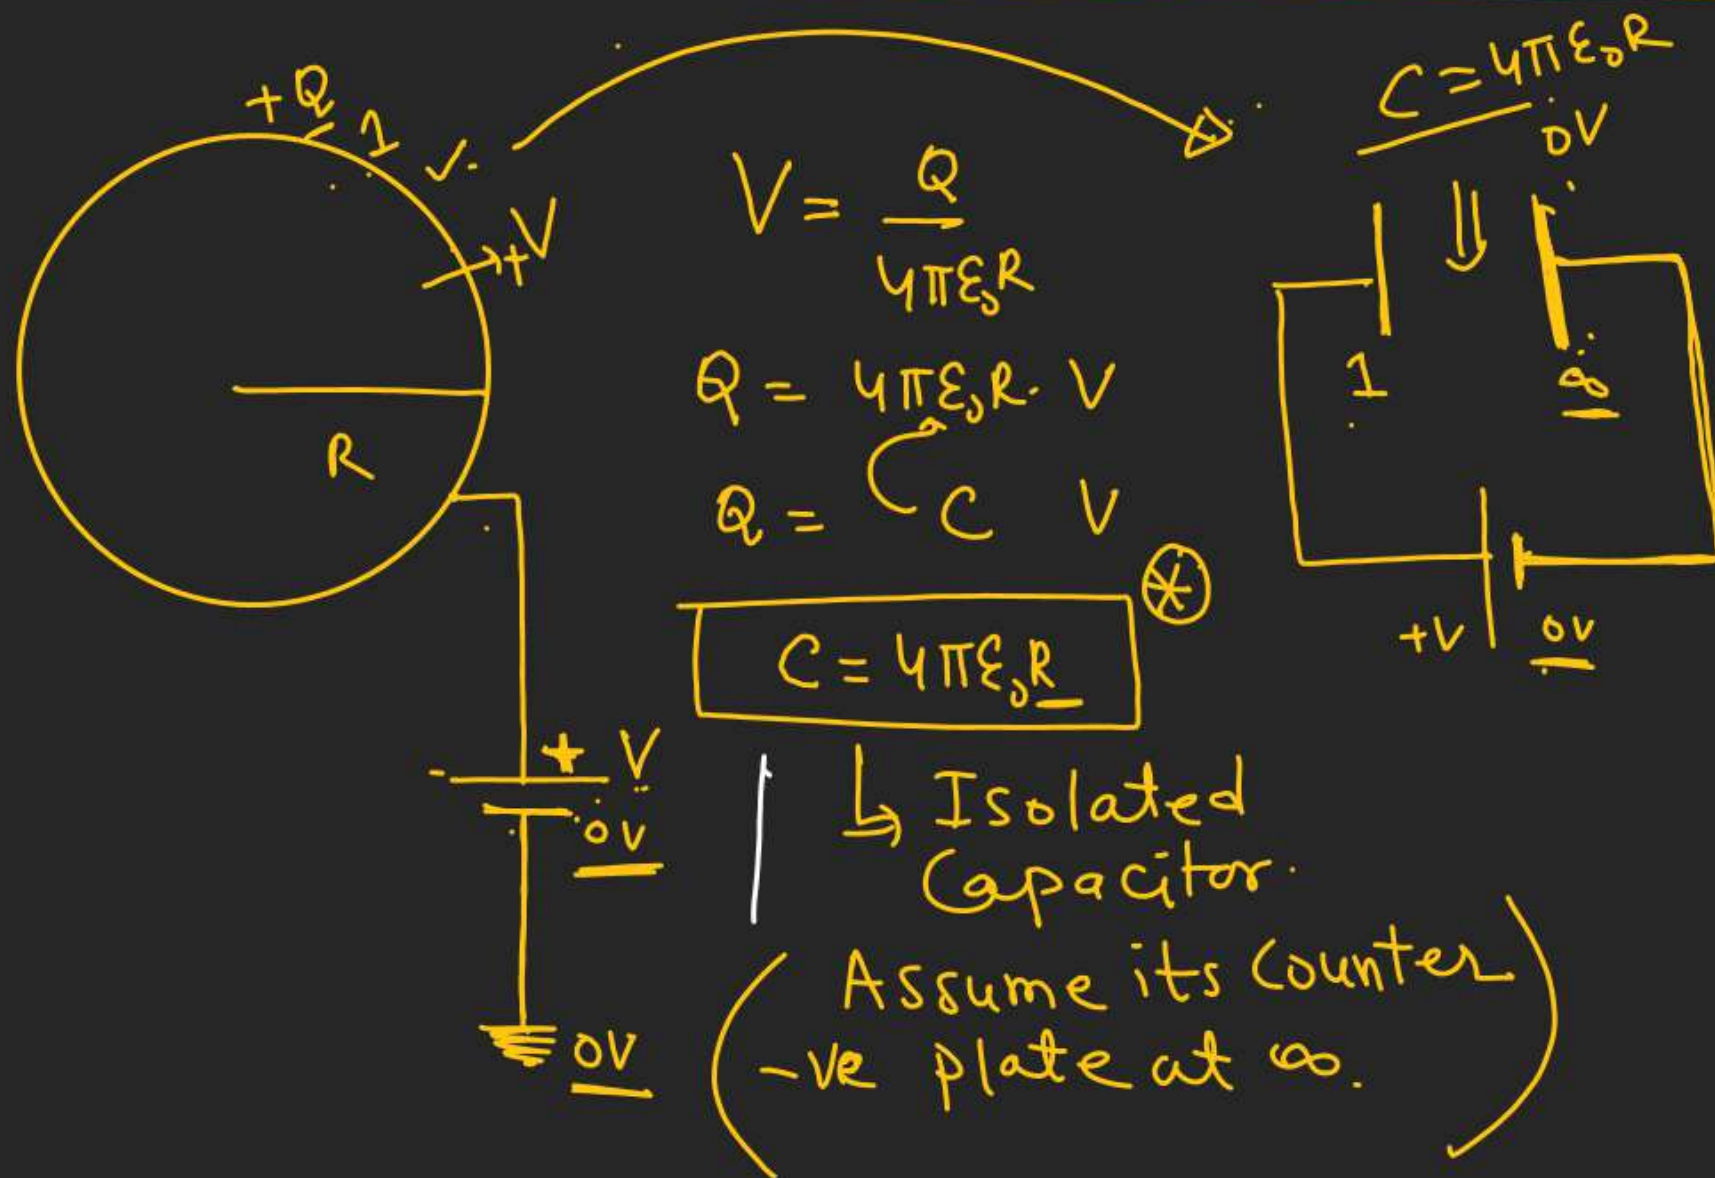 +Q
1 ✓.
+V
R
+ V
-
0V
0V
V = Q / 4πε₀R
Q = 4πε₀R. V
Q = C V
C = 4πε₀R
Isolated
Capacitor.
(Assume its counter
-ve plate at ∞.)
C = 4πε₀R
0V
1
∞
+V
0V